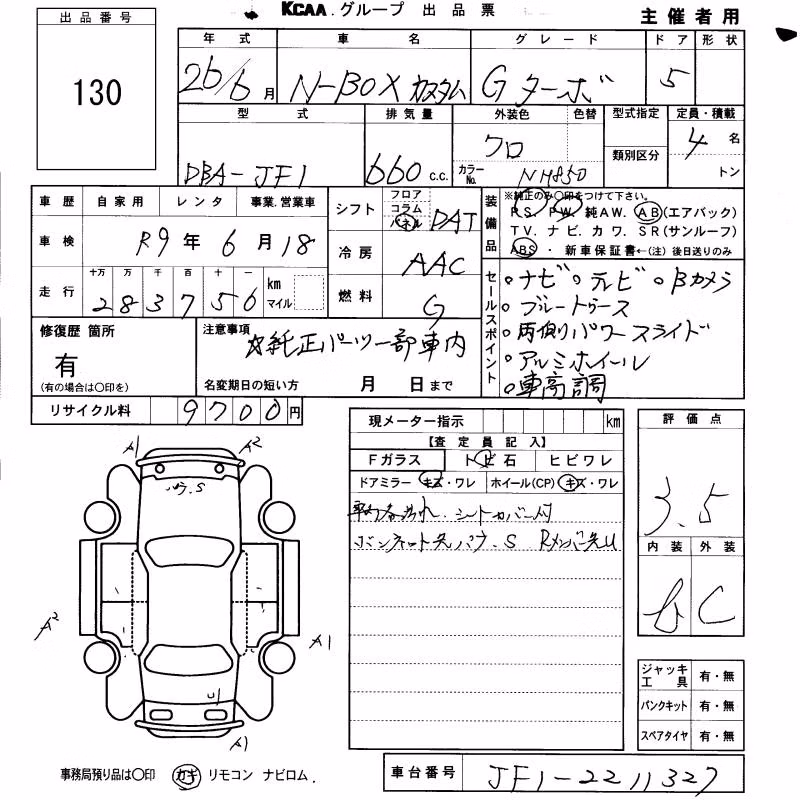 KCAA.グループ 出品票
主催者用
出品番号
130
年式 車名 グレード ドア 形状
26/6月 N-BOXカスタム Gターボ 5
型式 排気量 外装色 色替 型式指定 定員・積載
DBA-JF1 660c.c. クロ カラーNo. NH850 類別区分 4名
トン
車歴 自家用 レンタ 事業.営業車
車検 R9年6月18
走行 十万 万 千 百 十 一 km マイル
283756
シフト フロア コラム パネル DAT
冷房 AAC
燃料 G
装備品
※純正のみ〇印をつけて下さい。
P.S. P.W. 純AW. AB(エアバック)
TV. ナビ. カワ. SR(サンルーフ)
ABS ・ 新車保証書←(注) 後日送りのみ
セールスポイント
○ナビ○テレビ○Bカメラ
○ブルートゥース
○両側パワースライド
○アルミホイール
○車高調
修復歴 箇所
有
(有の場合は〇印を)
注意事項
☆純正パーツ一部車内
名変期日の短い方 月 日まで
リサイクル料 9700円
現メーター指示 km
【査定員記入】
Fガラス トビ石 ヒビワレ
ドアミラー キズ・ワレ ホイール(CP) キズ・ワレ
シートカバー付
S Rメンバー先U
評価点
3.5
内装 外装
b C
ジャッキ工具 有・無
パンクキット 有・無
スペアタイヤ 有・無
A1 A2
ワ.S
A2
A1
U
A1
事務局預り品は〇印 カギ リモコン ナビロム.
車台番号 JF1-2211327